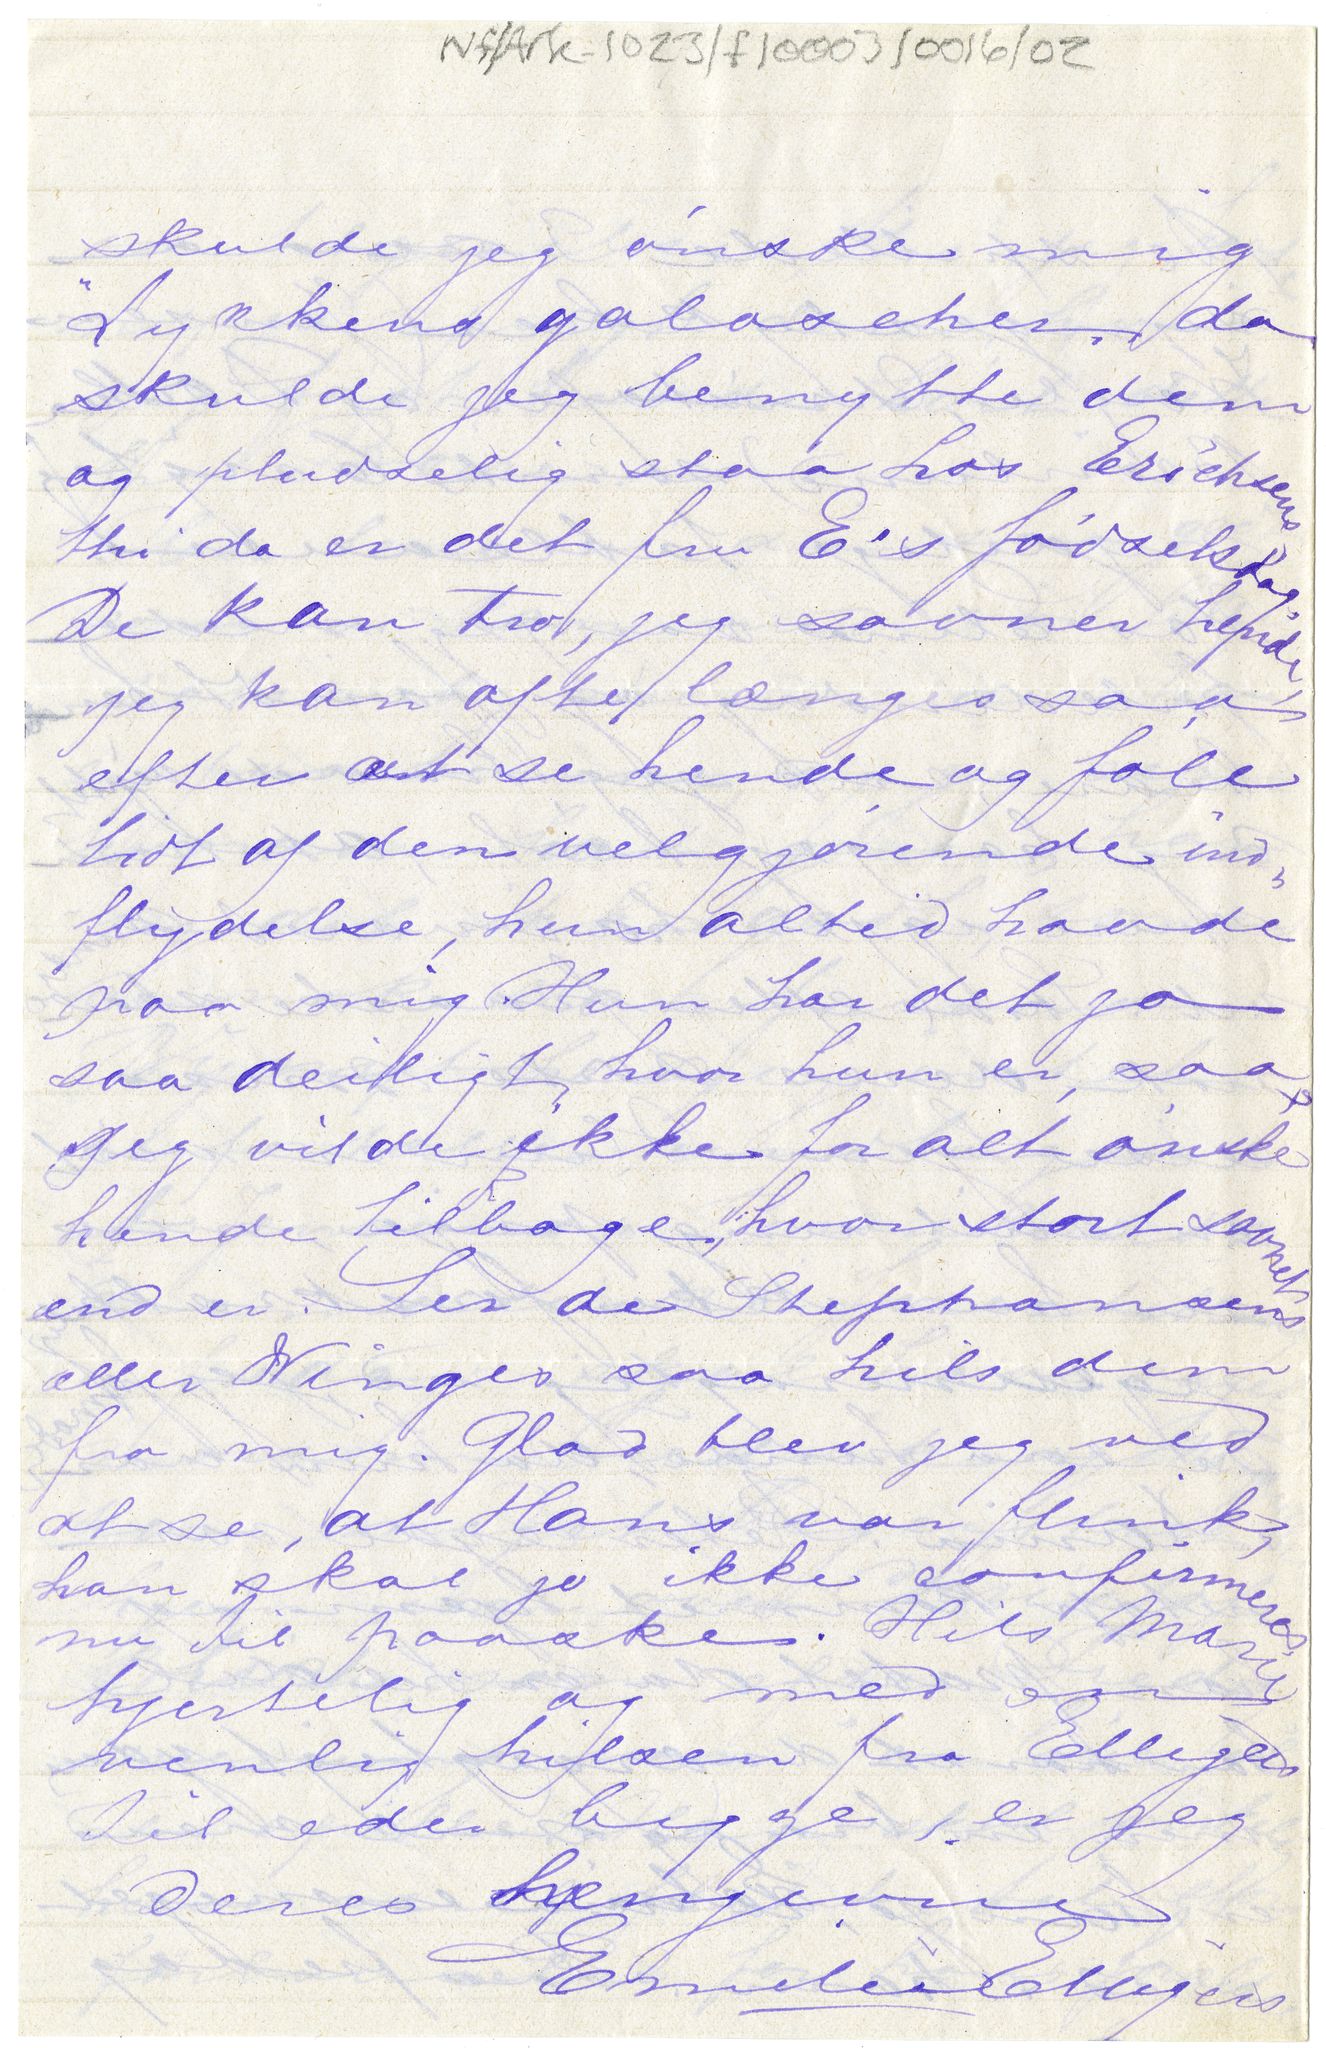 NF/Ark-1023/f10003/0016/02
skulde jeg ønske mig
"Lykkens galoscher", da
skulde jeg benytte dem
og pludselig staa hos Erichsens
thi da er det fru E's fødselsdag.
De kan tro, jeg savner hende,
jeg kan ofte længes saa
efter at se hende og føle
lidt af den velgjørende ind-
flydelse, hun altid havde
paa mig. Hun har det jo
saa deiligt, hvor hun er, saa
jeg vilde ikke for alt ønske
hende tilbage, hvor stort savnet
end er. Ser de Stephansens
eller Winges saa hils dem
fra mig. Glad blev jeg ved
at se, at Hans var flink,
han skal jo ikke confirmeres
nu til paaske. Hils Marie
hjertelig og med en
venlig hilsen fra Elligers
til eder begge, er jeg
Deres hengivne
Emilie Elligers